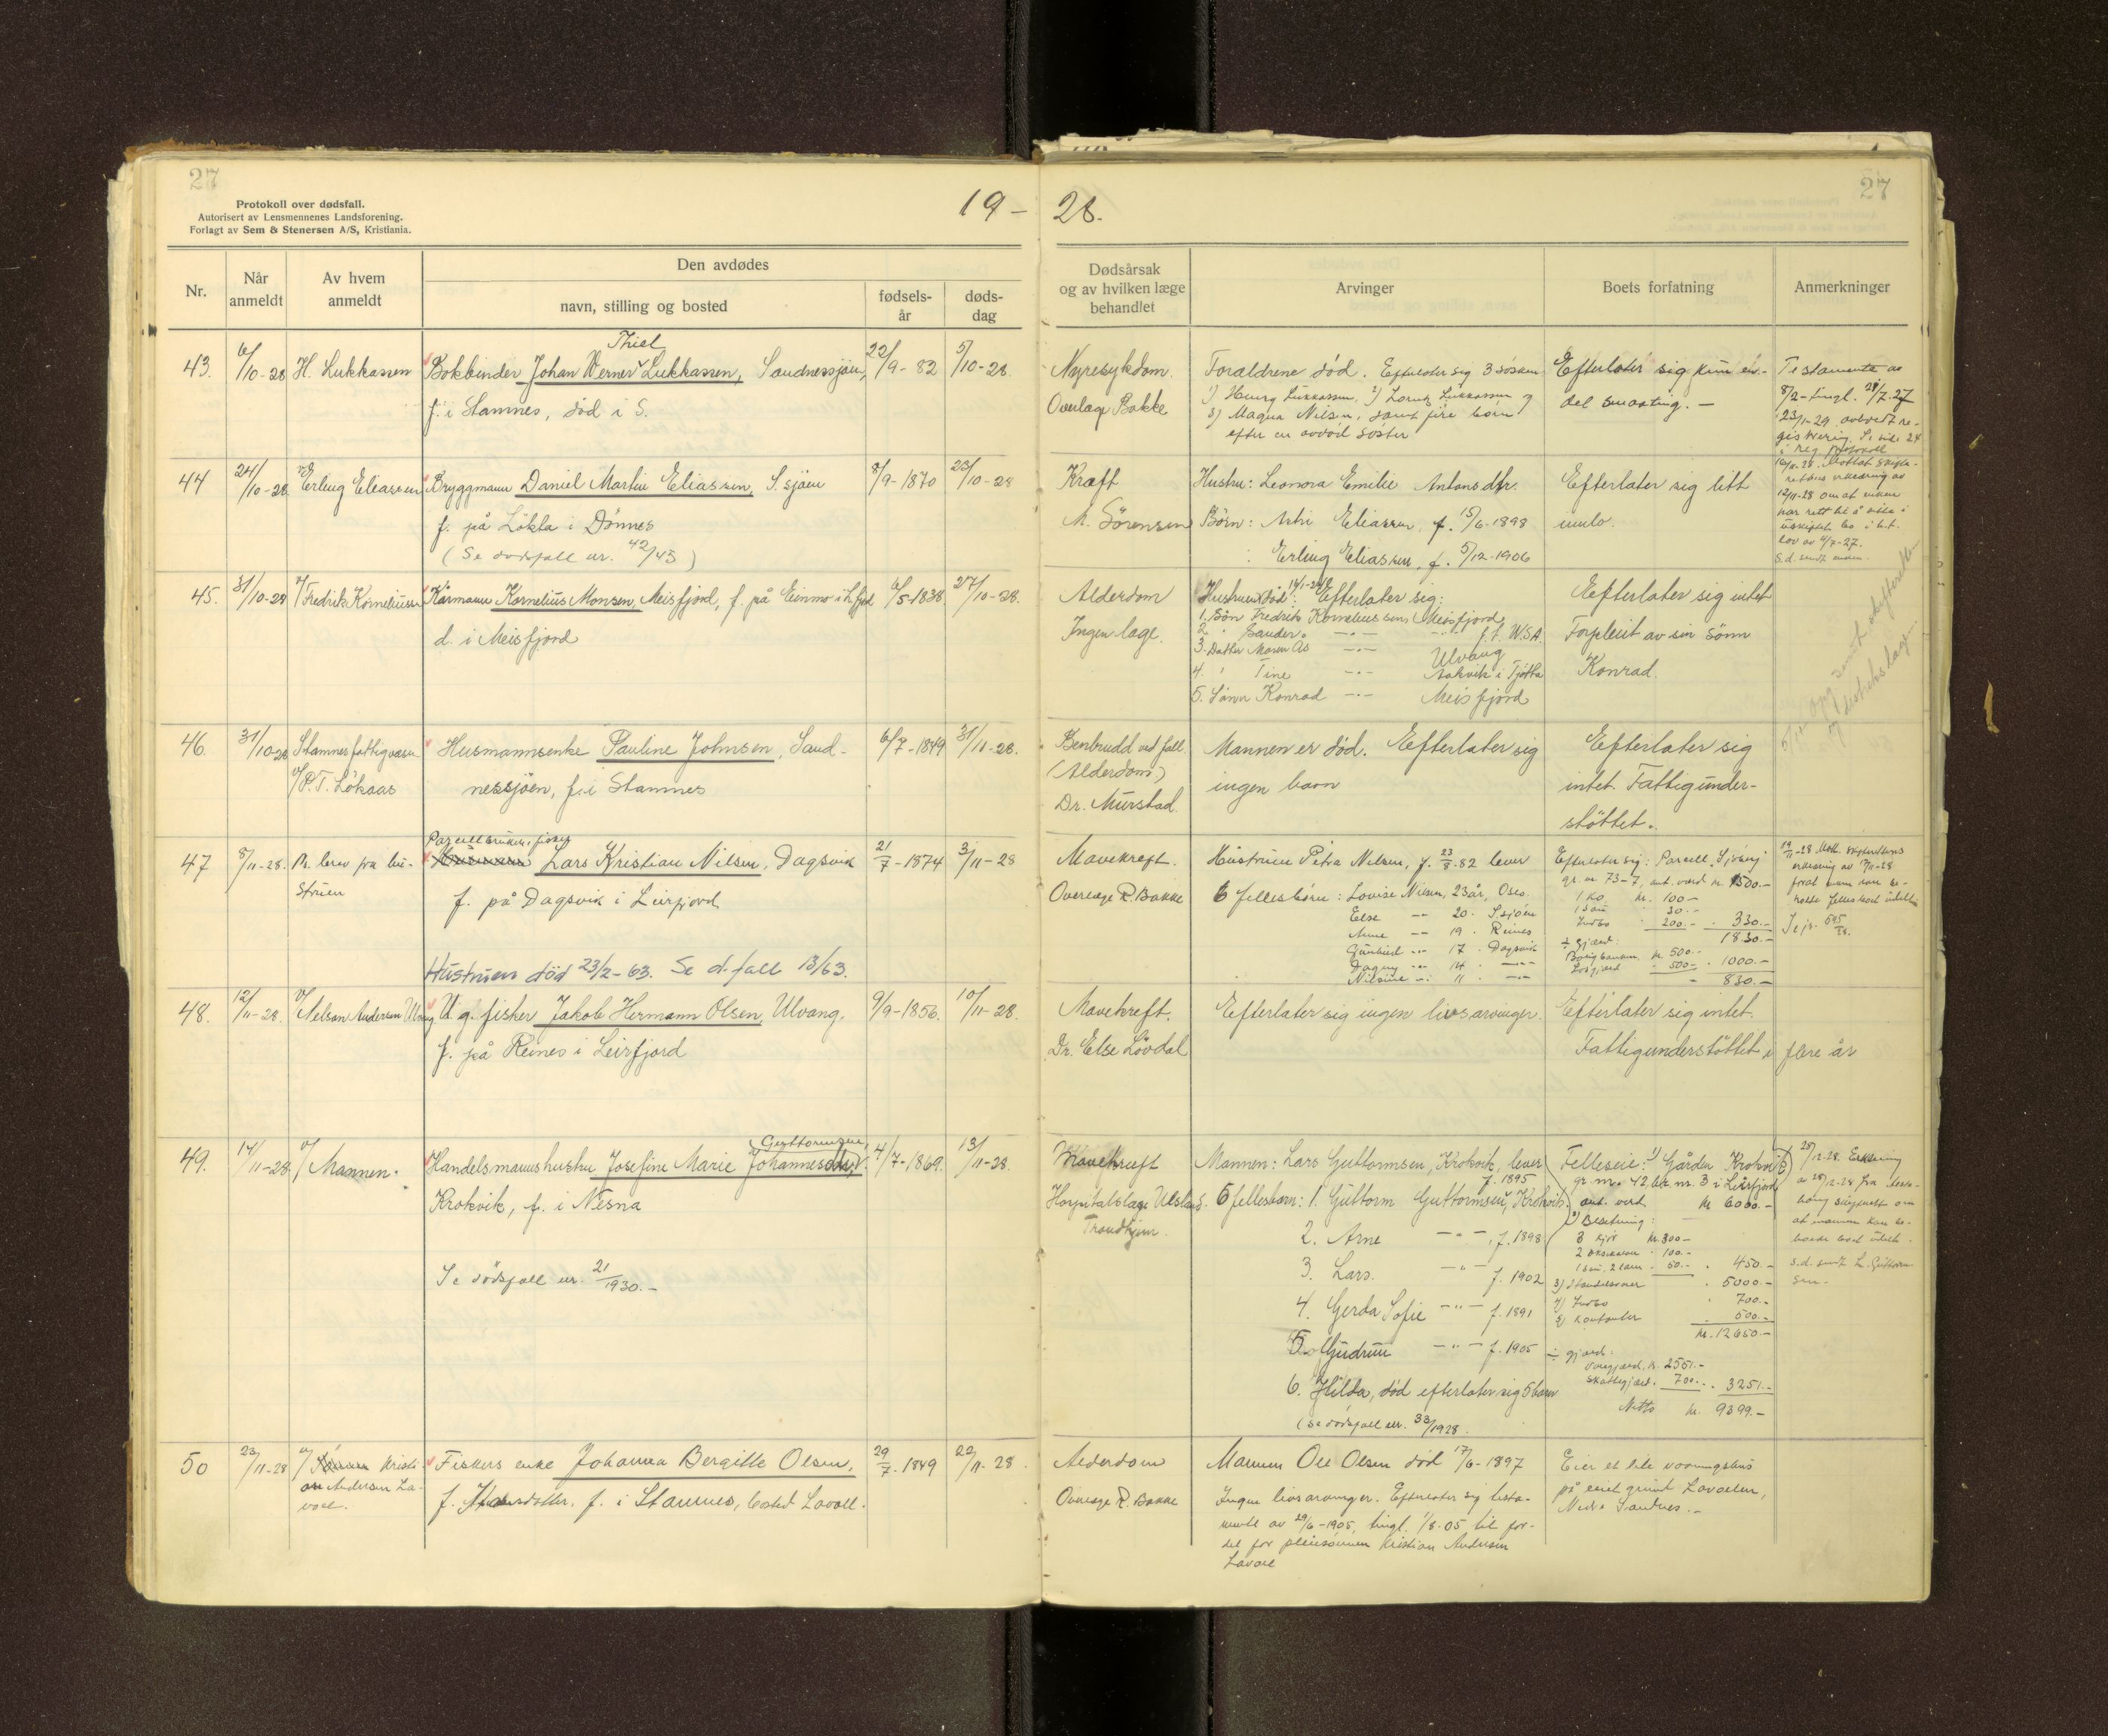 27
Protokoll over dødsfall.
Autorisert av Lensmennenes Landsforening.
Forlagt av Sem & Stenersen A/S, Kristiania.
19 - 28.
27
Nr.
Når anmeldt
Av hvem anmeldt
Den avdødes
navn, stilling og bosted
fødsels-
år
døds-
dag
Dødsårsak
og av hvilken læge
behandlet
Arvinger
Boets forfatning
Anmerkninger
43. 6/10-28 H. Lukkassen
Thiel
Bokbinder Johan Werner Lukkassen, Sandnessjøen, 22/9-82 5/10-28
f. i Stamnes, død i S.
Nyresykdom.
Overlæge Bakke
Foræeldrene død. Efterlater sig 3 søsken
1) Lukkassen, 2) Lukkassen og
3) Magna Nilsen, samt fire barn
efter en avdød søster
Efterlater sig kun en-
del smaating. -
Testamente av
8/2- tingl. 28/7-27
23/1-29 avholdt re-
gistrering. Se side 24
i reg protokoll
44 24/10-28 v/ Erling Eliassen
Bryggmann Daniel Martin Eliassen, S.sjøen 8/9-1870 23/10-28
f. på Løkta i Dønnes
(Se dødsfall nr. 42/43)
Kræft
M. Sørensen
Hustru: Leonora Emilie Antonsdtr.
Børn: Eliassen, f. 15/6-1898
Erling Eliassen, f. 5/12-1906
Efterlater sig litt
innbo.
12/11-28 om at enken
har rett til å sitte i
uskiftet bo i h.t.
lov av
s.d. sendt enken.
45. 31/10-28 v/ Fredrik Korneliussen
Kårmann Kornelius Monsen, Meisfjord, f. på Einmo i L.fjord 6/5-1838 27/10-28.
d. i Meisfjord
Alderdom
Ingen læge.
Hustruen død. Efterlater sig:
1. Søn Fredrik Korneliussen, Meisfjord
2. " Sander f.t. U.S.A.
3. Datter Maren Ulvang
4. " Tine Aakvik i Tjøtta
5. Sønn Konrad Meisfjord
Efterlater sig intet
Forpleiet av sin sønn
Konrad.
46. 31/10-28 Stamnes fattigvæsen
v/ P.T. Løkaas
Husmannsenke Pauline Johnsen, Sand- 6/7-1849 31/11-28.
nessjøen, f. i Stamnes
Benbrudd ved fall.
(Alderdom)
Dr. Murstad.
Mannen er død. Efterlater sig
ingen barn
Efterlater sig
intet. Fattigunder-
støttet.
47 8/11-28. M. brev fra hu-
struen
Parcellbruker, fisker
Lars Kristian Nilsen, Dagsvik 21/7-1874 3/11-28
f. på Dagsvik i Leirfjord
Hustruen død 23/2-63. Se d.fall 13/63.
Mavekreft.
Overlæge R. Bakke
Hustruen Petra Nilsen, f. 23/8.82 lever
6 fellesbørn: Lovise Nilsen, 23 år, Oslo.
Else -"- 20 . S.sjøen
Anne -"- 19 . Reines
Gunhild -"- 17 . Dagsvik
Dagny -"- 14 . -"-
Nilsine -"- 11 . -"-
Efterlater sig: Parcell,
gr. nr. 73-7, ant. verd kr. 1500.-
1 ko kr. 100.-
1 sau 30.-
Innbo 200.- 330.-
1830.-
÷ gjæld:
kr. 500.-
500.- 1000.-
830.-
48. 12/11-28. v/ Nelson Andersen Ulvang
U.g. fisker Jakob Hermann Olsen, Ulvang. 9/9-1856. 10/11-28.
f. på Reines i Leirfjord
Mavekreft.
Dr. Else Løvdal
Efterlater sig ingen livsarvinger.
Efterlater sig intet.
Fattigunderstøttet i flere år
49. 14/11-28 v/ Mannen.
Guttormsen
Handelsmannshustru Josefine Marie Johannesdtr, 4/7-1869. 13/11-28.
Krokvik, f. i Nesna
Se dødsfall nr. 21/1930.-
Mavekreft
Hospitalslæge
Trondhjem.
Mannen: Lars Guttormsen, Krokvik, lever
6 fellesbarn: 1. Guttorm Guttormsen, Krokvik. f. 1895
2. Arne -"- , f. 1898
3. Lars. -"- f. 1902
4. Gerda Sofie -"- f. 1891
5. Gudrun -"- f. 1905
6. Hilda, død efterlater sig 5 barn
(Se dødsfall nr. 33/1928.
Felleseie: 1) Gården Krokvik
gr. nr. 42 br. nr. 3 i Leirfjord
ant. verd kr 6000.-
2) Besetning:
3 kjør kr. 300.-
2 100.-
1 sau, 2 lam 50.- 450.-
3) Handelsvarer 5000.-
4) Innbo 700.-
5) Kontanter 500.-
kr. 12650.-
÷ gjæld:
Varegjæld, kr. 2551.-
Skattegjæld. 700.- 3251.-
Netto kr. 9399.-
28/12-28. Erklæring
at mannen kan be-
s.d. sendt L. Guttorm-
sen.
50 23/11-28 v/ Kristi-
an Andersen La-
voll.
Fiskers enke Johanna Bergitte Olsen, 29/7-1849 22/11-28.
f. i Stamnes, bosted Lavoll.
Alderdom
Overlæge R. Bakke
Mannen Ole Olsen død 17/6-1897
Ingen livsarvinger. Efterlater sig testa-
mente av 29/6-1905, tingl. 1/8-05 til for-
del for pleiesønnen Kristian Andersen
Lavoll
Eier et lite våningshus
på leiet grunn Lavollen,
Nedre Sandnes.-